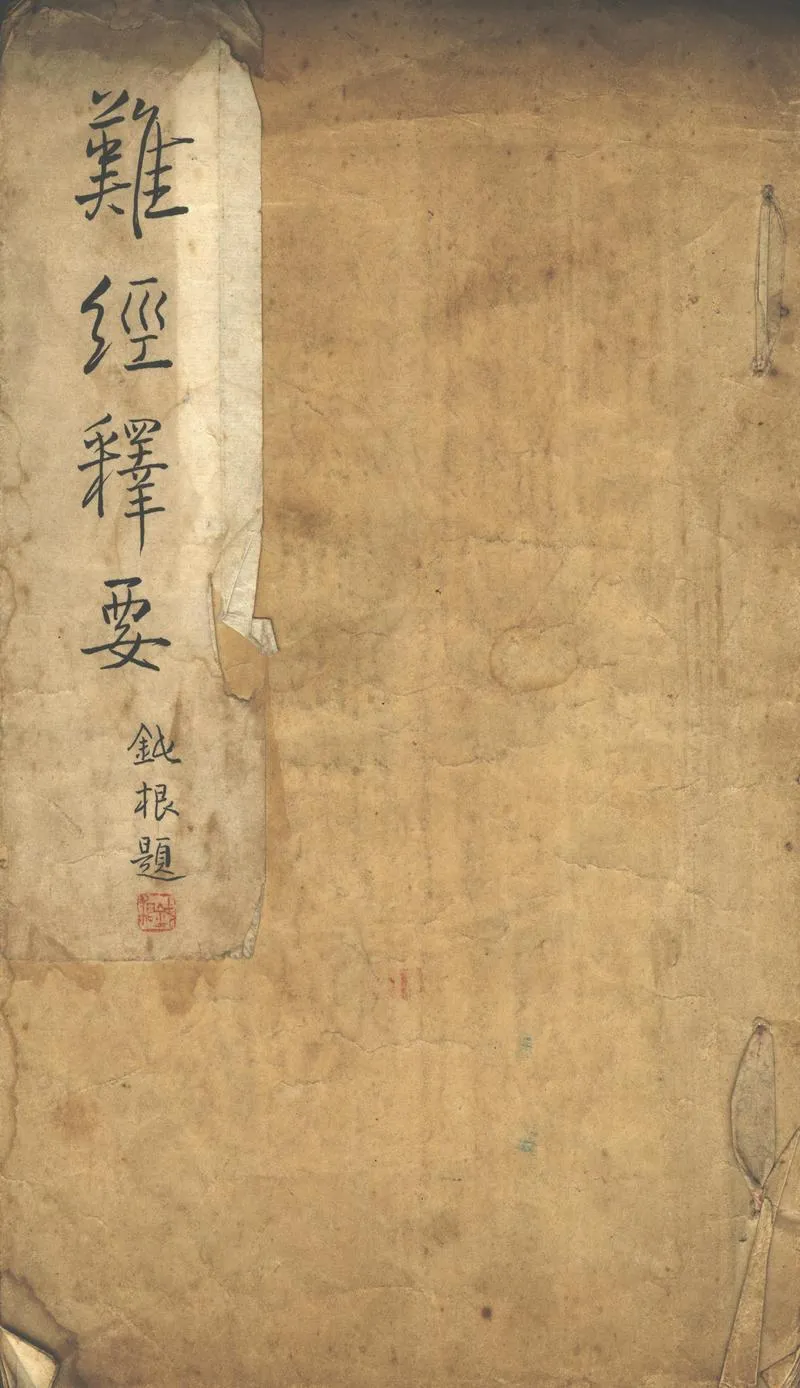 難經釋要
鈍根題